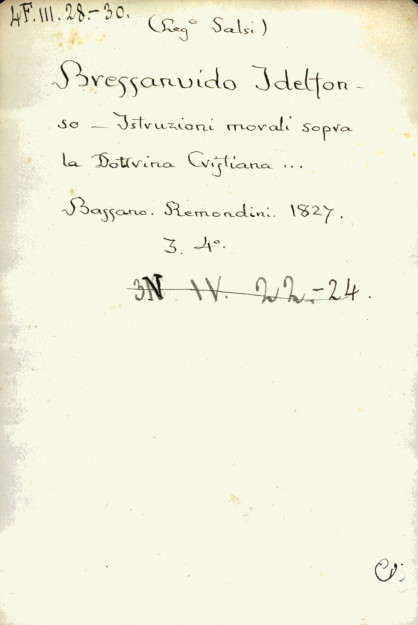 4F.III.28.-30.
(Leg.º Salsi)
Bressanvido Idelfon-
so – Istruzioni morali sopra
la Dottrina Cristiana ...
Bassano. Remondini. 1827.
3. 4º.
3N IV. 22.-24.